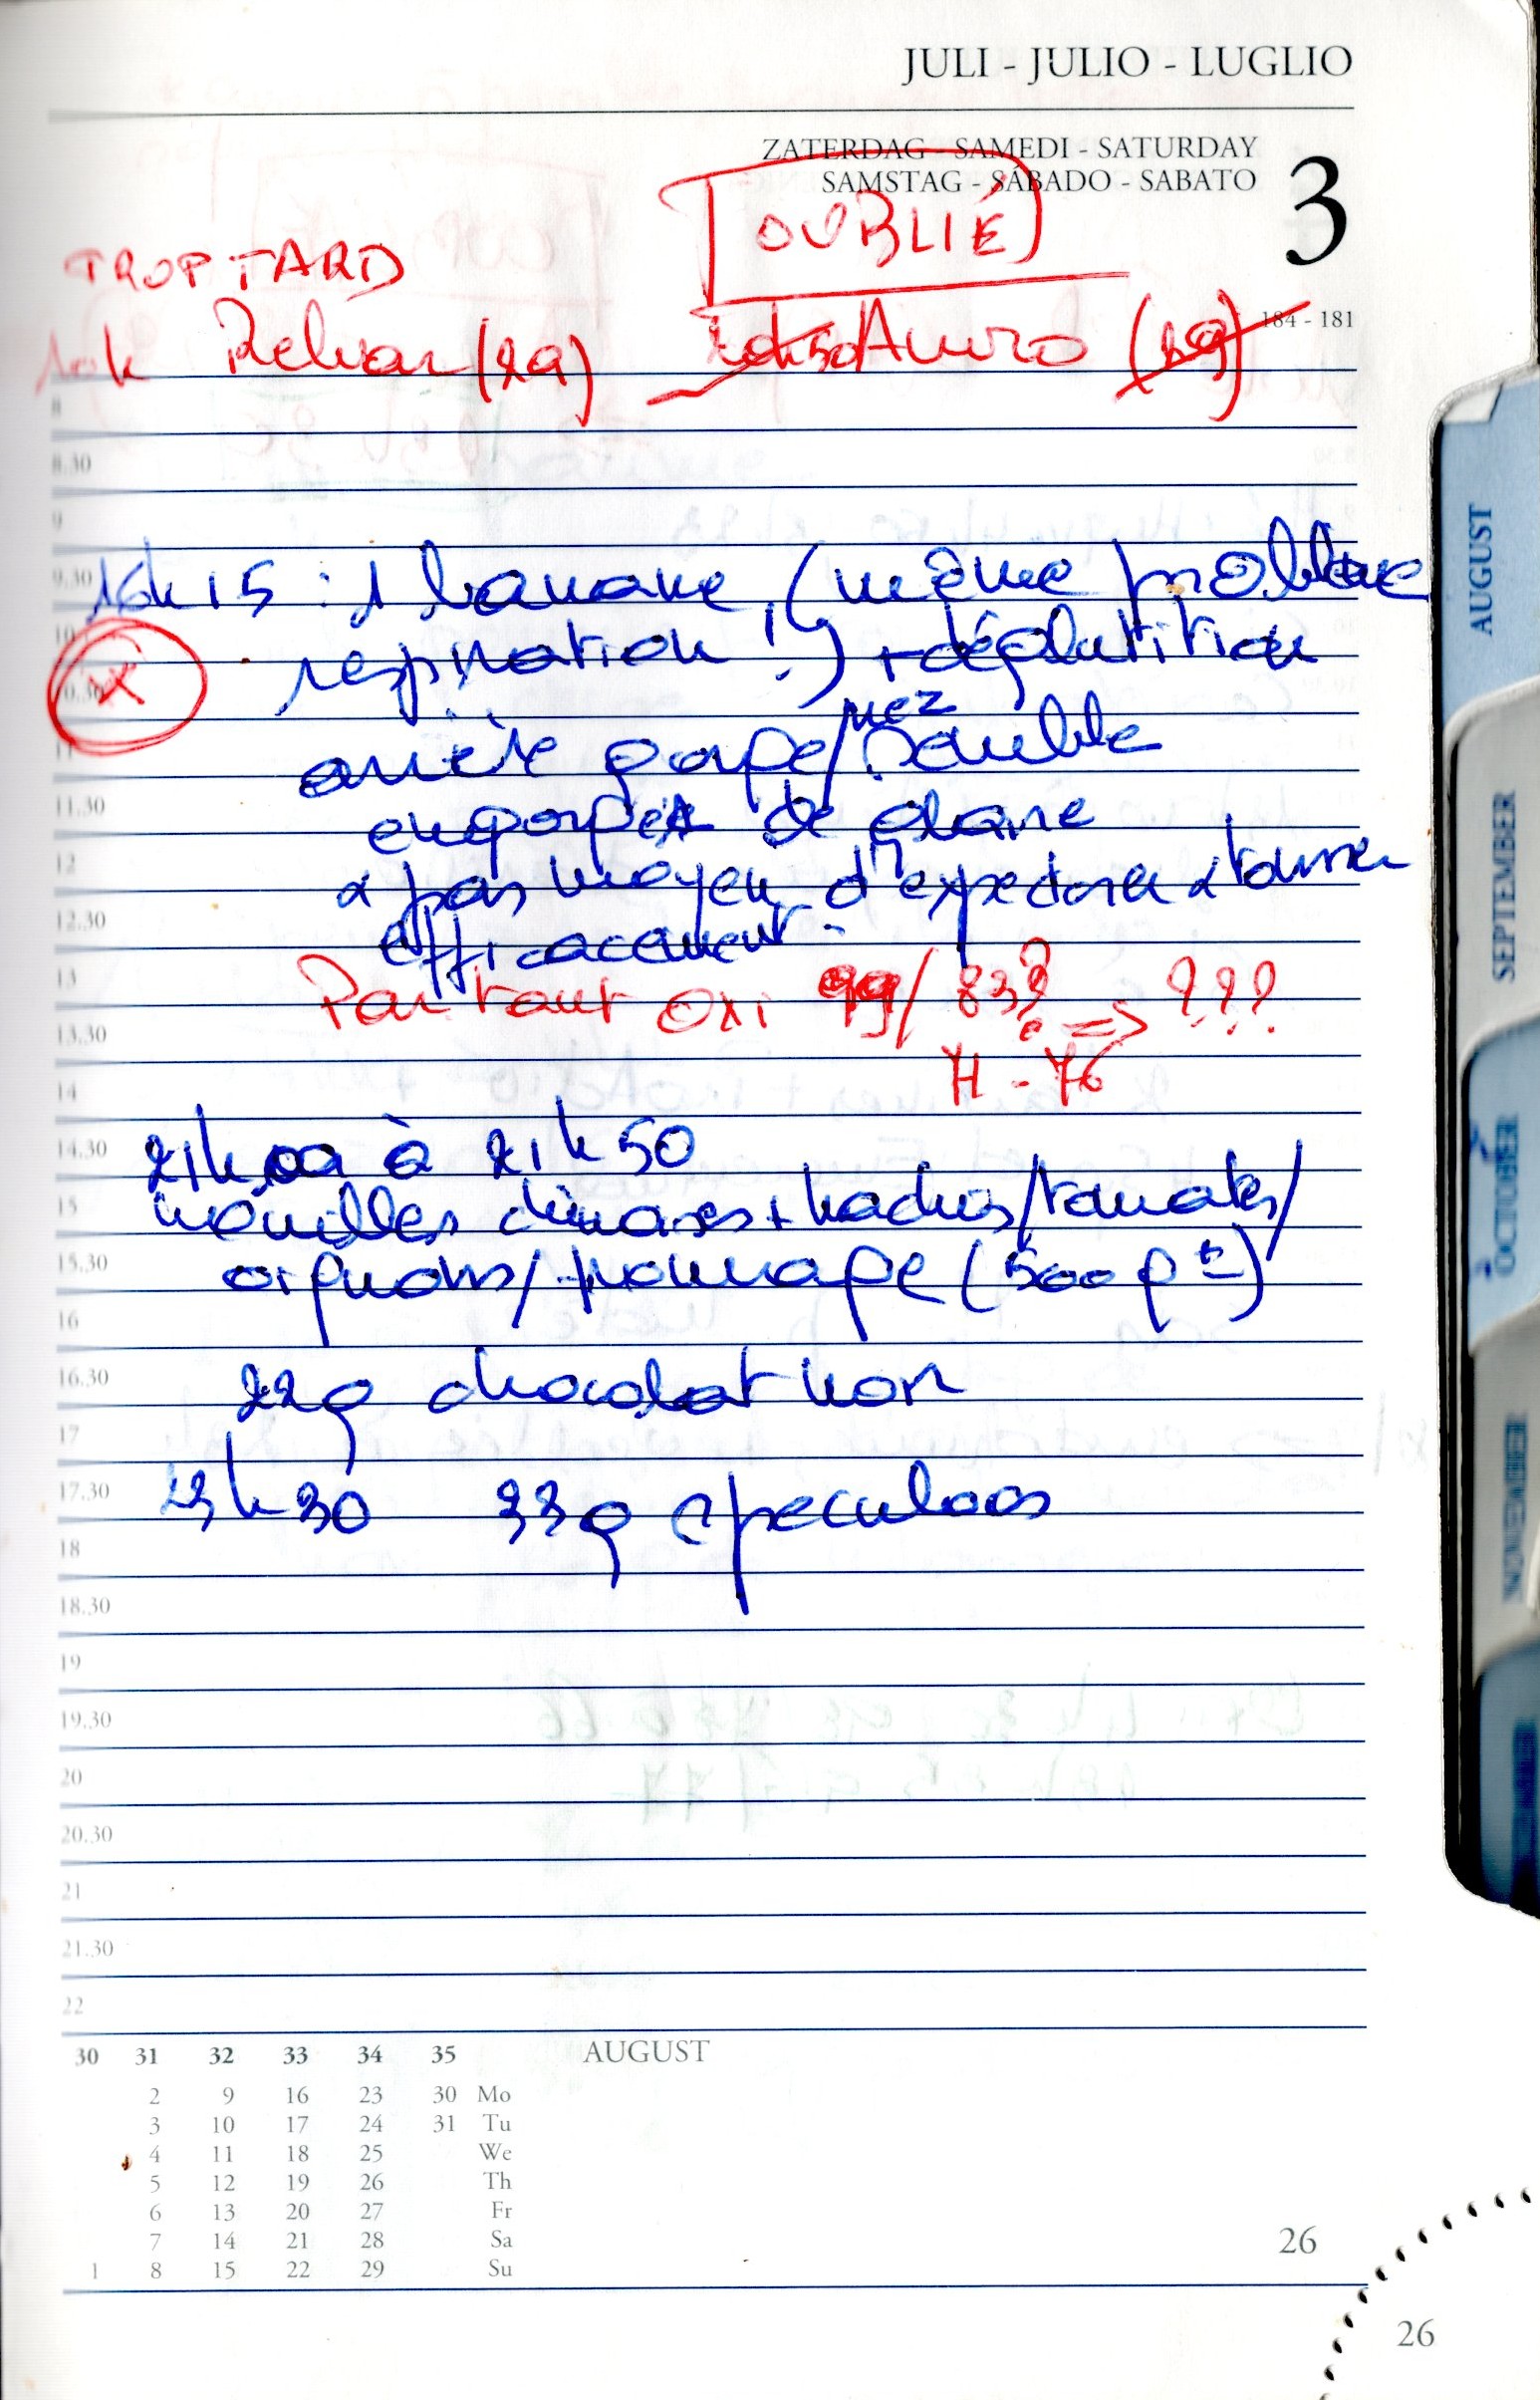 JULI - JULIO - LUGLIO
ZATERDAG - SAMEDI - SATURDAY
SAMSTAG - SÁBADO - SABATO
3
184 - 181
OUBLIÉ
TROP TARD
10h Relvar (2g) Auvro (2g)
8
8.30
9
9.30
16h15 : 1 banane, (même problème
10
respiration !) + déglutition
10.30
nez
arrière gorge/ semble
11
11.30
engorgée de glaire
12
& pas moyen d'expectorer & tousser
12.30
efficacement.
13
Pourtant oxi 99/ 83? => ???
13.30
H - 76
14
14.30
21h00 à 21h50
15
nouilles chinoises + hachis/tomates/
15.30
oignons/fromage (500g ±)
16
16.30
22g chocolat noir
17
17.30
23h30 33g speculoos
18
18.30
19
19.30
20
20.30
21
21.30
22
30 31 32 33 34 35 AUGUST
2 9 16 23 30 Mo
3 10 17 24 31 Tu
4 11 18 25 We
5 12 19 26 Th
6 13 20 27 Fr
7 14 21 28 Sa
1 8 15 22 29 Su
26
26
AUGUST
SEPTEMBER
OCTOBER